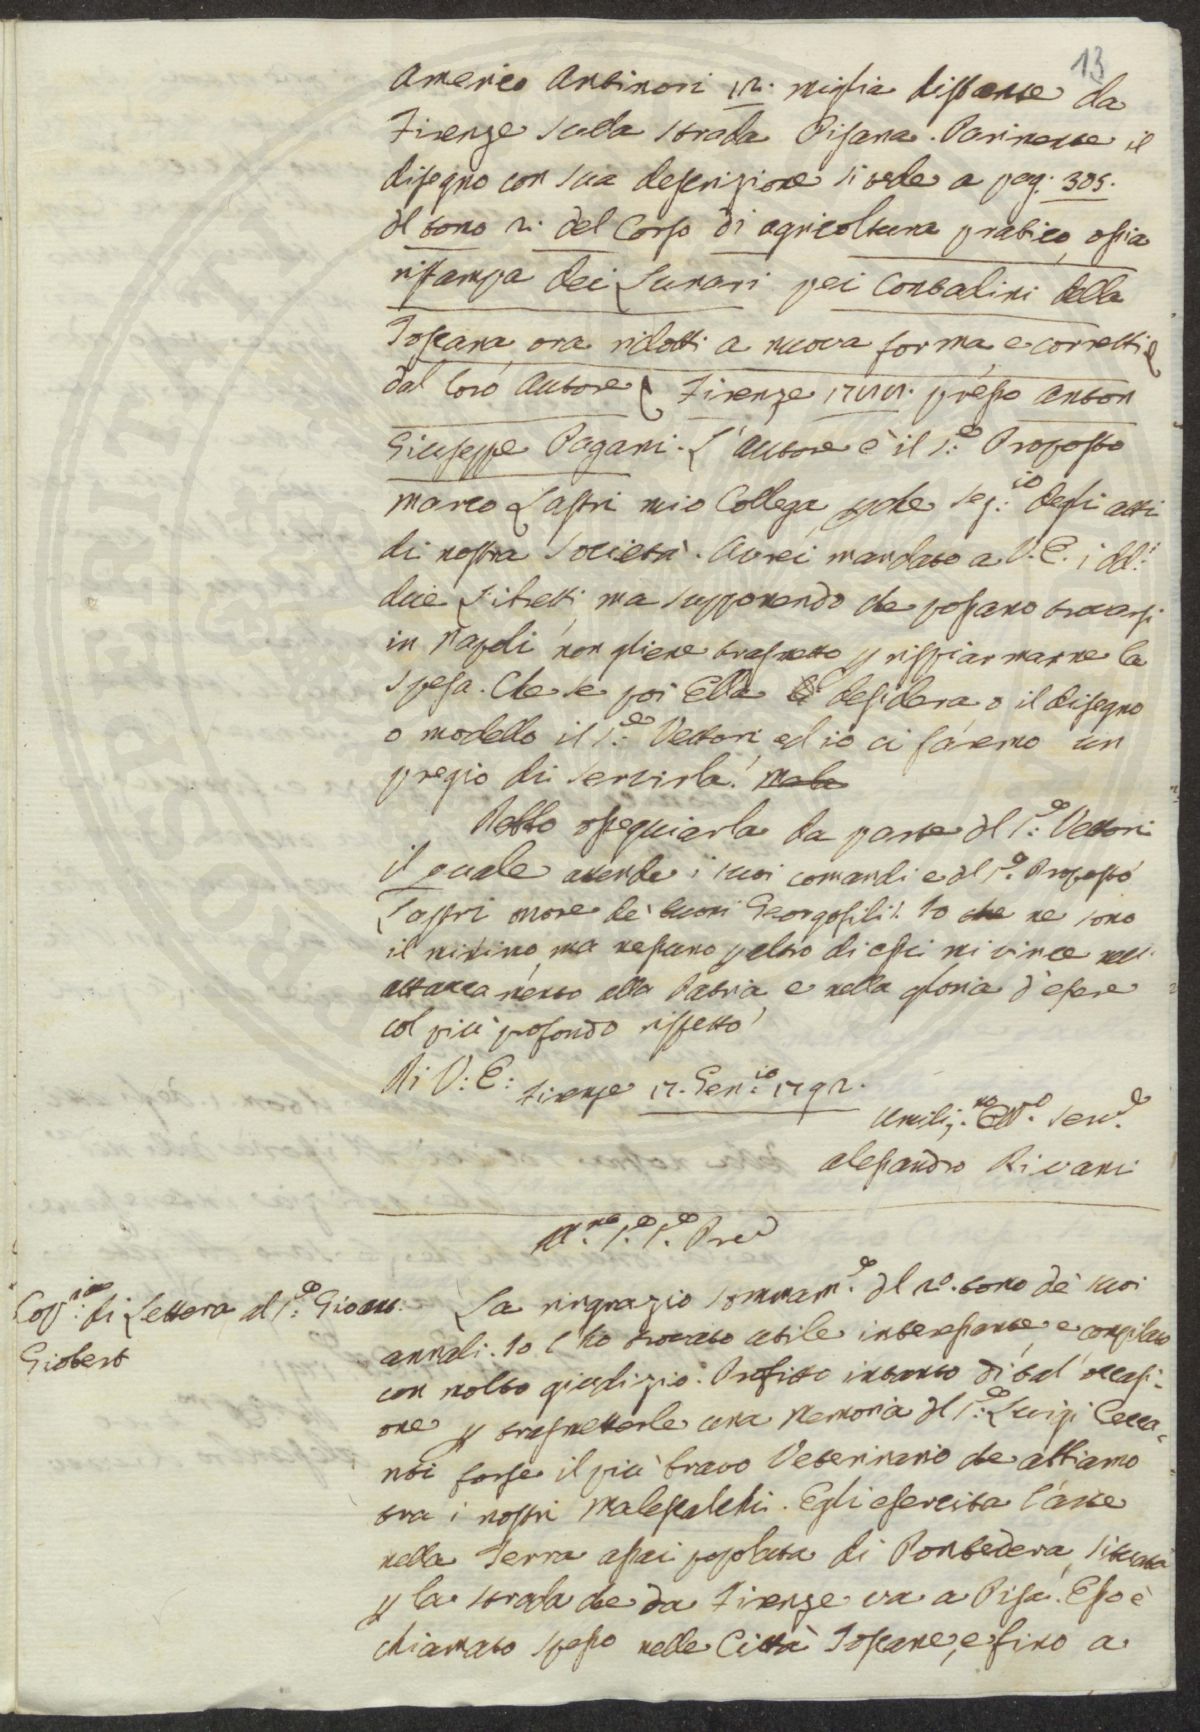 13
Americo Antinori 12. miglia distante da
Firenze sulla strada Pisana. Parimente il
disegno con sua descrizione si vede a pag: 305.
del tomo 2: del Corso di agricoltura pratico, ossia
ristampa dei Lunari pei Contadini della
Toscana ora ridotti a nuova forma e corretti
dal loro Autore Firenze presso Anton
Giuseppe Pagani. L'Autore è il S:e Proposto
Marco Lastri mio Collega, che Seg:io degli atti
di nostra Società. Avrei mandato a V. E. i dd:i
due Libretti, ma supponendo che possano trovarsi
in Napoli non gliene trasmetto p rispiarmarne la
spesa. Che se poi Ella desidera o il disegno
o modello il S:e Vettori, ed io ci faremo un
pregio di servirla.
Debbo ossequiarla da parte del S:e Vettori
il quale attende i suoi comandi e del S:e Proposto
Lastri onore de' buoni Georgofili. Io che ne sono
il minimo, ma nessuno peltro di essi mi vince nell'
attaccamento alla Patria, e nella gloria d'essere
col più profondo rispetto
Di V: E: Firenze 17. Gen:io 1792.
Umiliss:mo Serv:e
Alessandro Rivani
Copia di Lettera al S:e Gioan:
Giobert
La ringrazio sommam:e del 2o. tomo de' suoi
annali. Io l'ho trovato utile interessante, e compilato
con molto giudizio. Profitto intanto di tal' occasi-
one p trasmetterle una Memoria del S:e Luigi Cecca-
nti forse il più bravo Veterinario che abbiamo
tra i nostri Malescalchi. Egli esercita l'arte
nella Terra assai popolata di Pontedera, situata
p la strada che da Firenze va a Pisa. Esso è
chiamato spesso nelle Città Toscane, e fino a